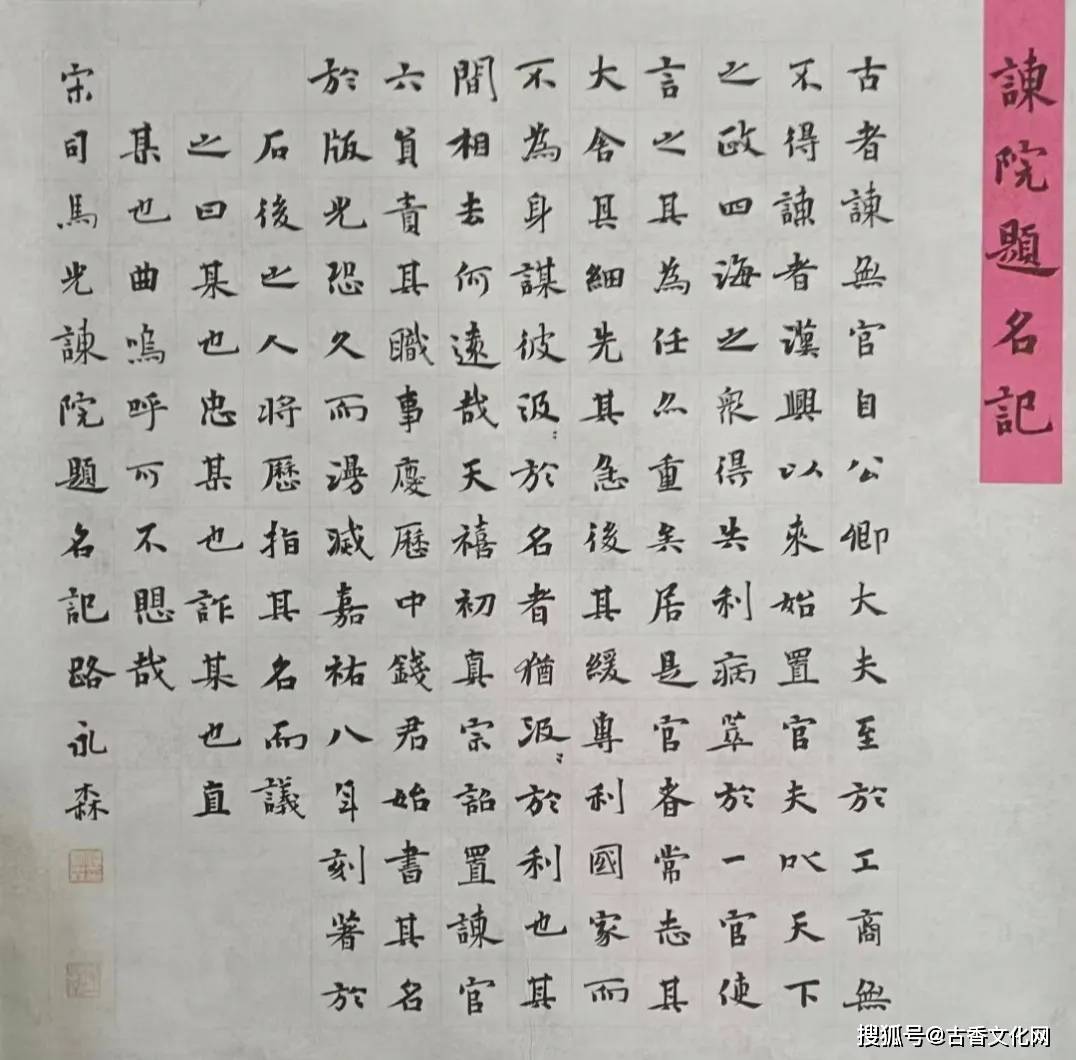 諫院題名記
古者諫無官自公卿大夫至於工商無
不得諫者漢興以來始置官夫以天下
之政四海之衆得失利病萃於一官使
言之其為任亦重矣居是官者常志其
大舍其細先其急後其緩專利國家而
不為身謀彼汲〻於名者猶汲〻於利也其
間相去何遠哉天禧初真宗詔置諫官
六員責其職事慶歷中錢君始書其名
於版光恐久而漫滅嘉祐八年刻著於
石後之人將歷指其名而議
之曰某也忠某也詐某也直
某也曲嗚呼可不愳哉
宋司馬光諫院題名記路永森
搜狐号@古香文化网